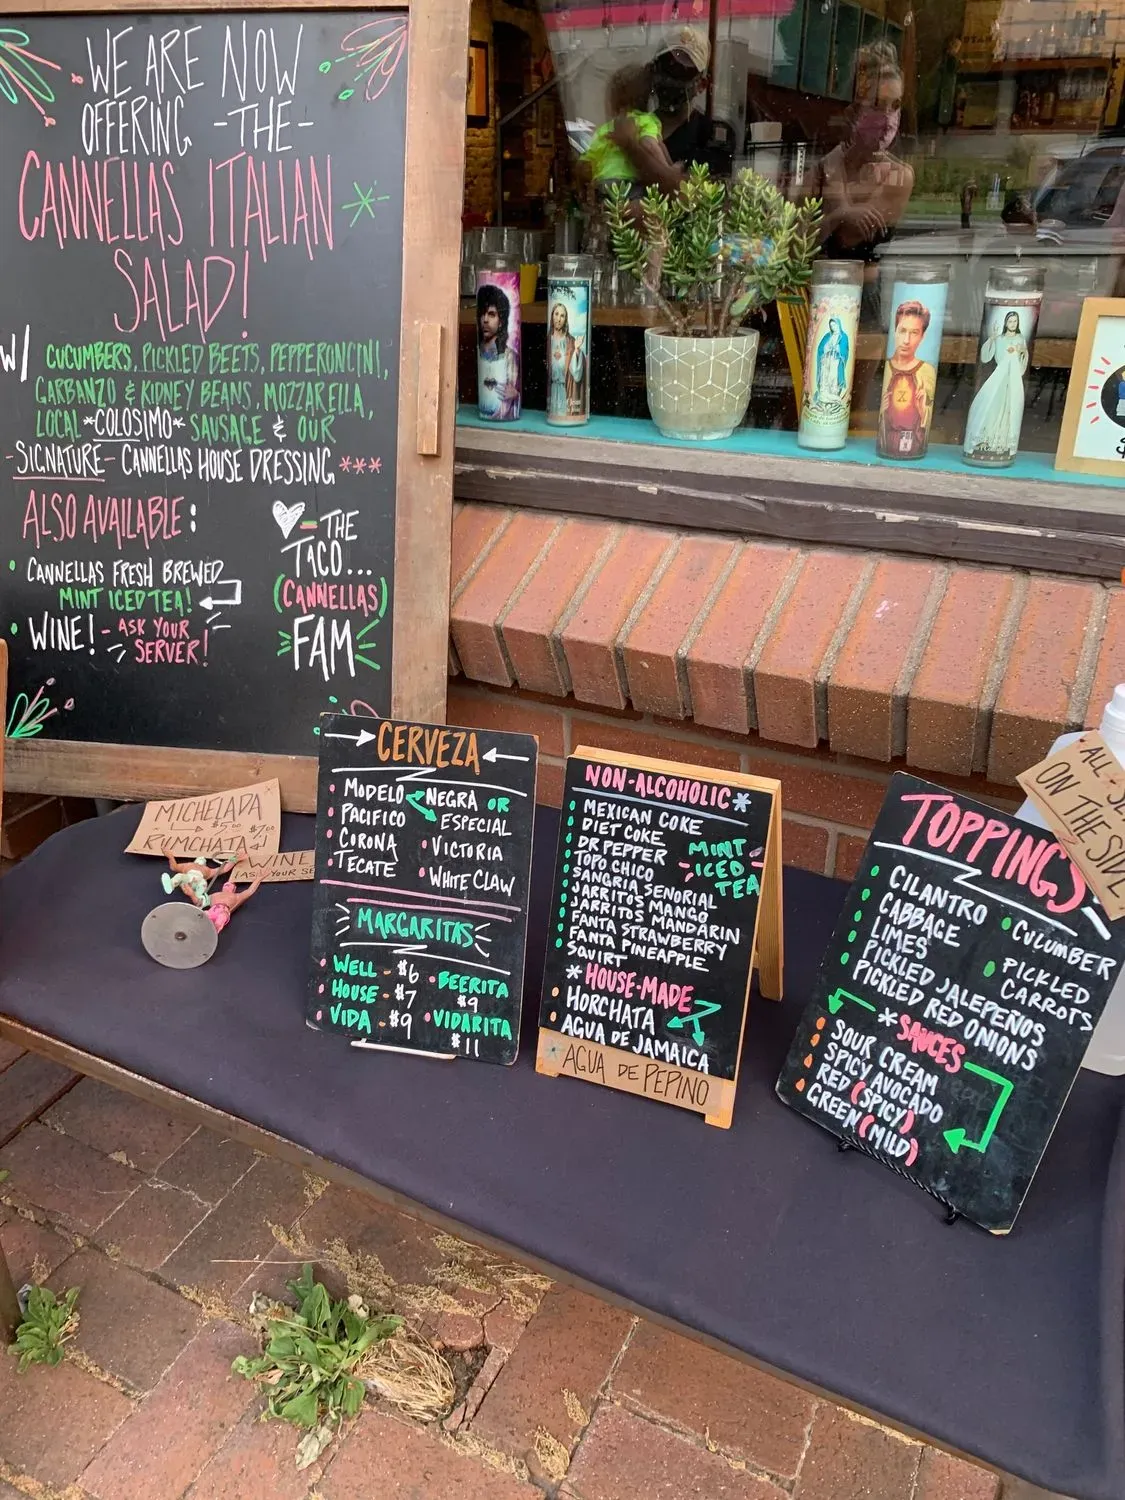 WE ARE NOW
OFFERING -THE-
CANNELLAS ITALIAN
SALAD!
W/ CUCUMBERS, PICKLED BEETS, PEPPERONCINI,
GARBANZO & KIDNEY BEANS, MOZZARELLA,
LOCAL *COLOSIMO* SAUSAGE & OUR
-SIGNATURE- CANNELLAS HOUSE DRESSING ***
ALSO AVAILABLE:
• CANNELLAS FRESH BREWED
MINT ICED TEA!
• WINE! - ASK YOUR
SERVER!
THE
TACO...
(CANNELLAS)
FAM
MICHELADA
RUMCHATA
WINE
CERVEZA
• MODELO NEGRA OR
ESPECIAL
• PACIFICO
• CORONA
• TECATE
• VICTORIA
• WHITE CLAW
MARGARITAS
• WELL - $6
• HOUSE - $7
• VIDA - $9
• BEERITA
$9
• VIDARITA
$11
NON-ALCOHOLIC*
MEXICAN COKE
DIET COKE
DR PEPPER
TOPO CHICO
SANGRIA SENORIAL
JARRITOS MANGO
JARRITOS MANDARIN
FANTA STRAWBERRY
FANTA PINEAPPLE
SQUIRT
MINT
ICED
TEA
*HOUSE-MADE
HORCHATA
AGUA DE JAMAICA
* AGUA DE PEPINO
TOPPINGS
CILANTRO
CABBAGE
LIMES
PICKLED JALEPEÑOS
PICKLED RED ONIONS
CUCUMBER
PICKLED
CARROTS
*SAUCES
SOUR CREAM
SPICY AVOCADO
RED (SPICY)
GREEN (MILD)
ALL
ON THE SIDE